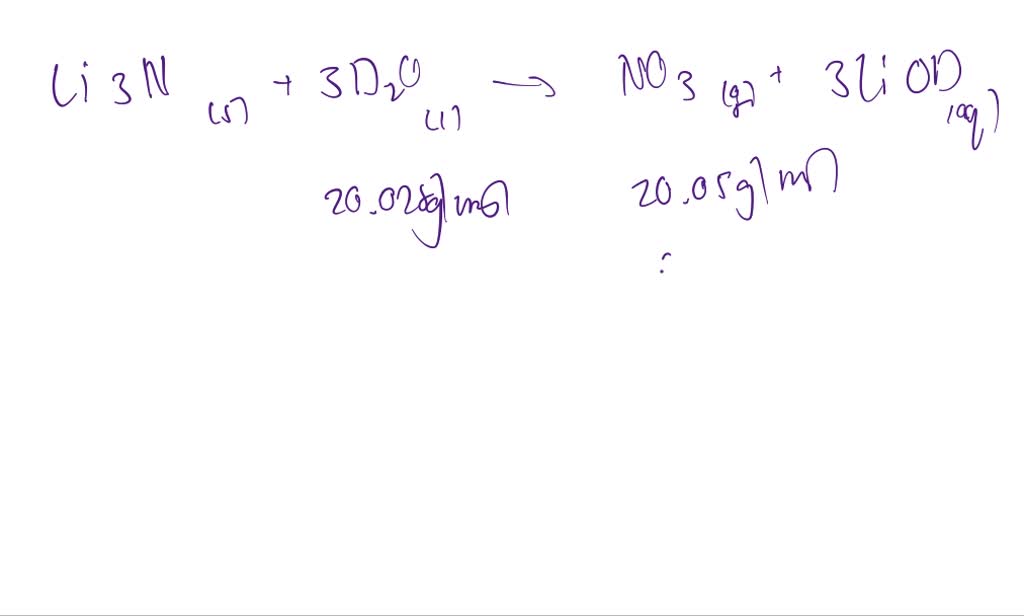 Li3N (s) + 3D2O (l) → NO3 (g) + 3LiOD (aq)
20.028g/mol 20.05g/mol
?